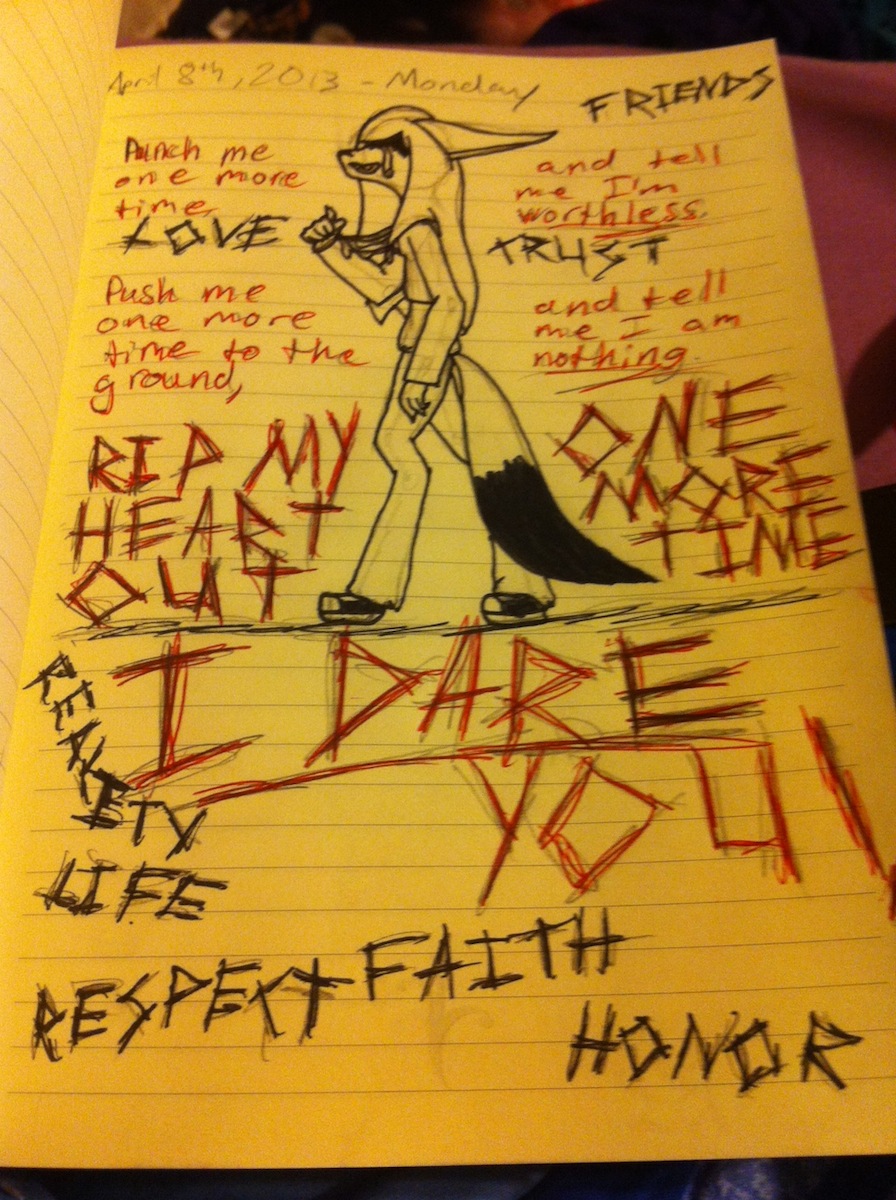 April 8th, 2013 - Monday
FRIENDS
Punch me
one more
time,
and tell
me I'm
worthless.
LOVE
TRUST
Push me
one more
time to the
ground,
and tell
me I am
nothing.
RIP MY
HEART
OUT
ONE
MORE
TIME
I DARE
YOU!
REALITY
LIFE
RESPECT
FAITH
HONOR